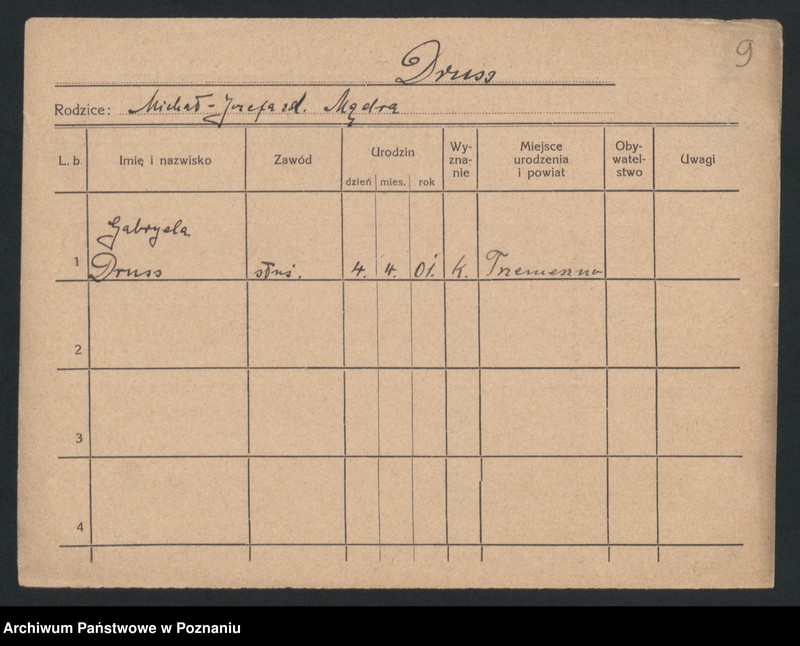 9
Druss
Rodzice: Michał - Józefa zd. Mądra
L. b. Imię i nazwisko Zawód Urodzin Wy-zna-nie Miejsce urodzenia i powiat Oby-watel-stwo Uwagi
dzień mies. rok
Gabryela
1 Druss służ. 4. 4. 01. k. Trzemeszno
2
3
4
Archiwum Państwowe w Poznaniu